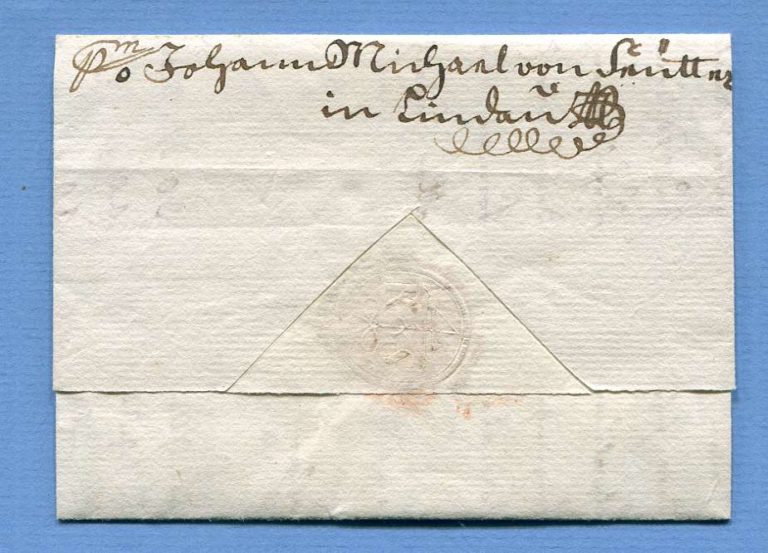 Pmo Johann Michael von Seütter
in Lindaŭ